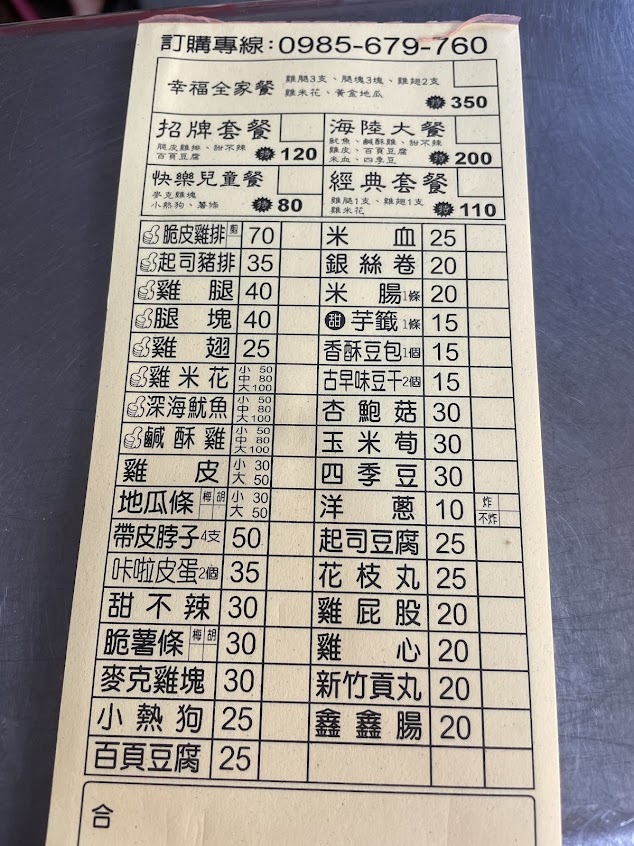 訂購專線:0985-679-760
幸福全家餐 雞腿3支、腿塊3塊、雞翅2支
雞米花、黃金地瓜 350
招牌套餐 脆皮雞排、甜不辣
百頁豆腐 120
海陸大餐 魷魚、鹹酥雞、甜不辣
雞皮、百頁豆腐
米血、四季豆 200
快樂兒童餐 麥克雞塊
小熱狗、薯條 80
經典套餐 雞腿1支、雞翅1支
雞米花 110
脆皮雞排 剪 70 米血 25
起司豬排 35 銀絲卷 20
雞腿 40 米腸1條 20
腿塊 40 甜 芋籤1條 15
雞翅 25 香酥豆包1個 15
雞米花 小50 中80 大100 古早味豆干2個 15
深海魷魚 小50 中80 大100 杏鮑菇 30
鹹酥雞 小50 中80 大100 玉米荀 30
雞皮 小30 大50 四季豆 30
地瓜條 梅 胡 小30 大50 洋蔥 10 炸 不炸
帶皮脖子4支 50 起司豆腐 25
咔啦皮蛋2個 35 花枝丸 25
甜不辣 30 雞屁股 20
脆薯條 梅 胡 30 雞心 20
麥克雞塊 30 新竹貢丸 20
小熱狗 25 鑫鑫腸 20
百頁豆腐 25
合